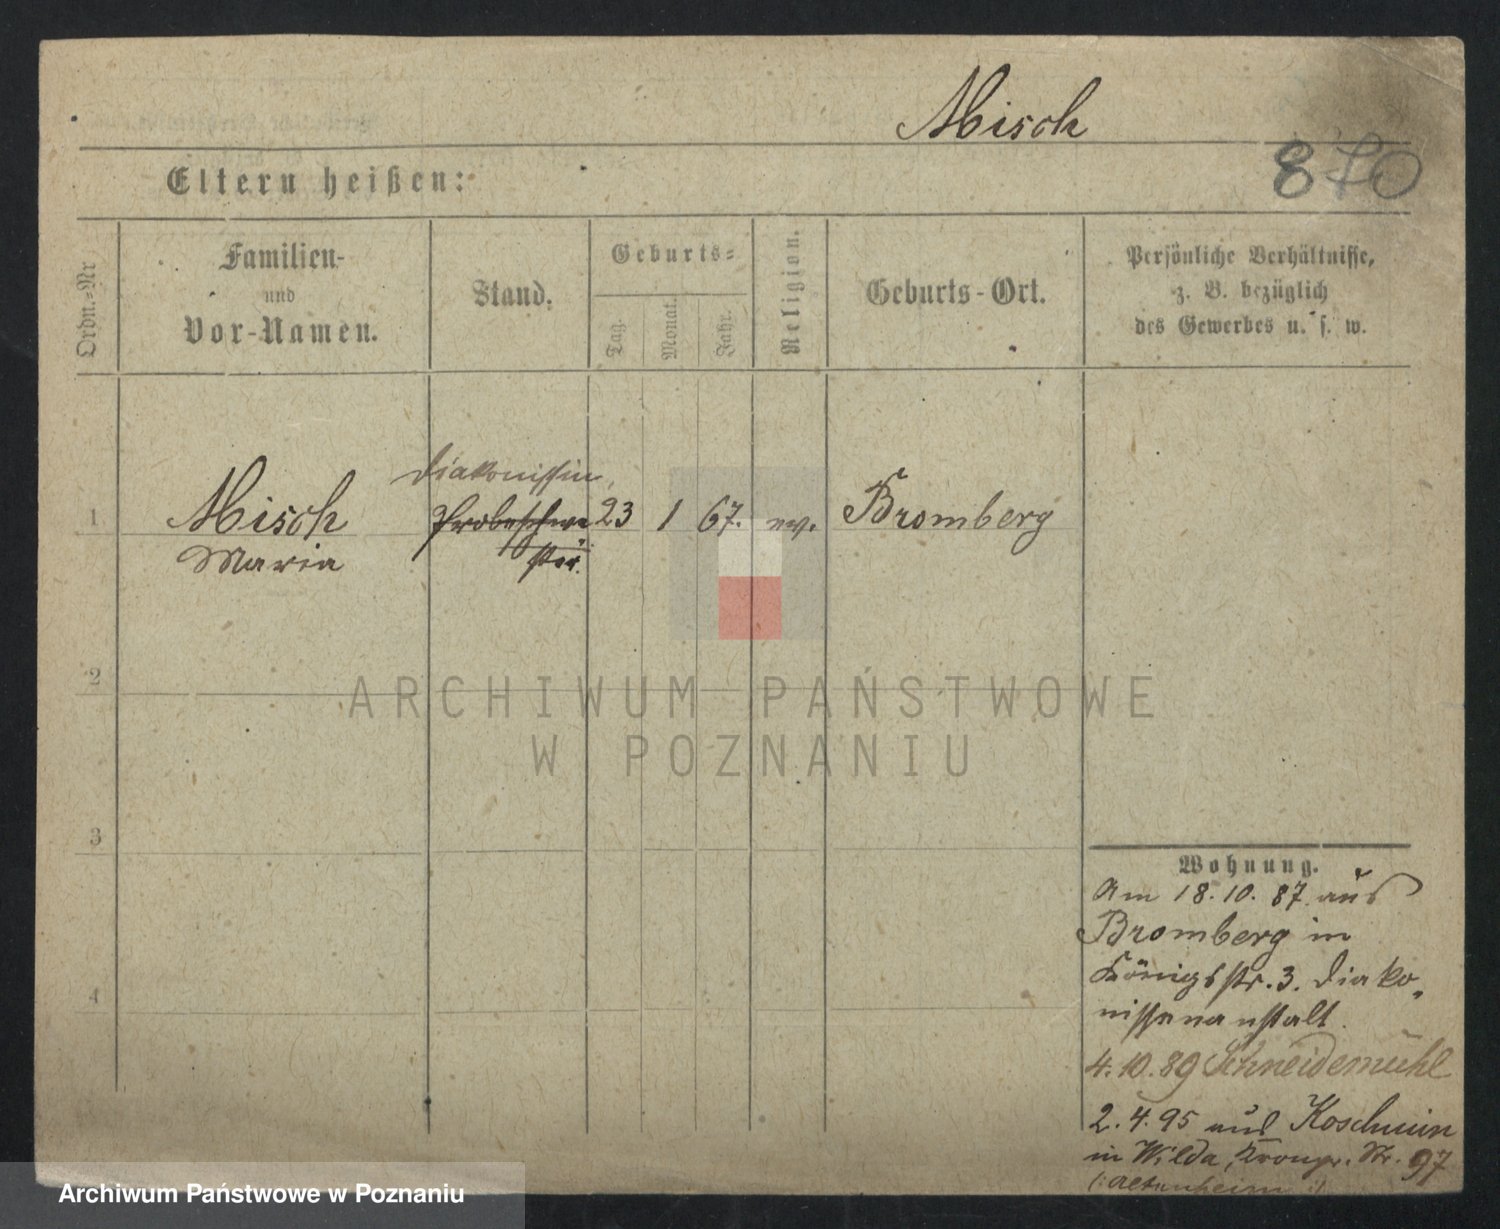 Misch
870
Eltern heißen:
Ordn.-Nr
Familien-
und
Vor-Namen.
Stand.
Geburts-
Tag.
Monat.
Jahr.
Religion.
Geburts-Ort.
Persönliche Verhältnisse,
z. B. bezüglich
des Gewerbes u. s. w.
Diakonissin,
1 Misch Probeschwe 23 1 67. ev. Bromberg
Maria ster.
2
ARCHIWUM PAŃSTWOWE
W POZNANIU
3
Wohnung.
Am 18.10.87. aus
Bromberg in
Königsstr. 3. Diako-
nissenanstalt.
4
4.10.89 Schneidemühl
2.4.95 aus Koschmin
in Wilda, Kronpr. Str. 97
(: Altenheim :)
Archiwum Państwowe w Poznaniu